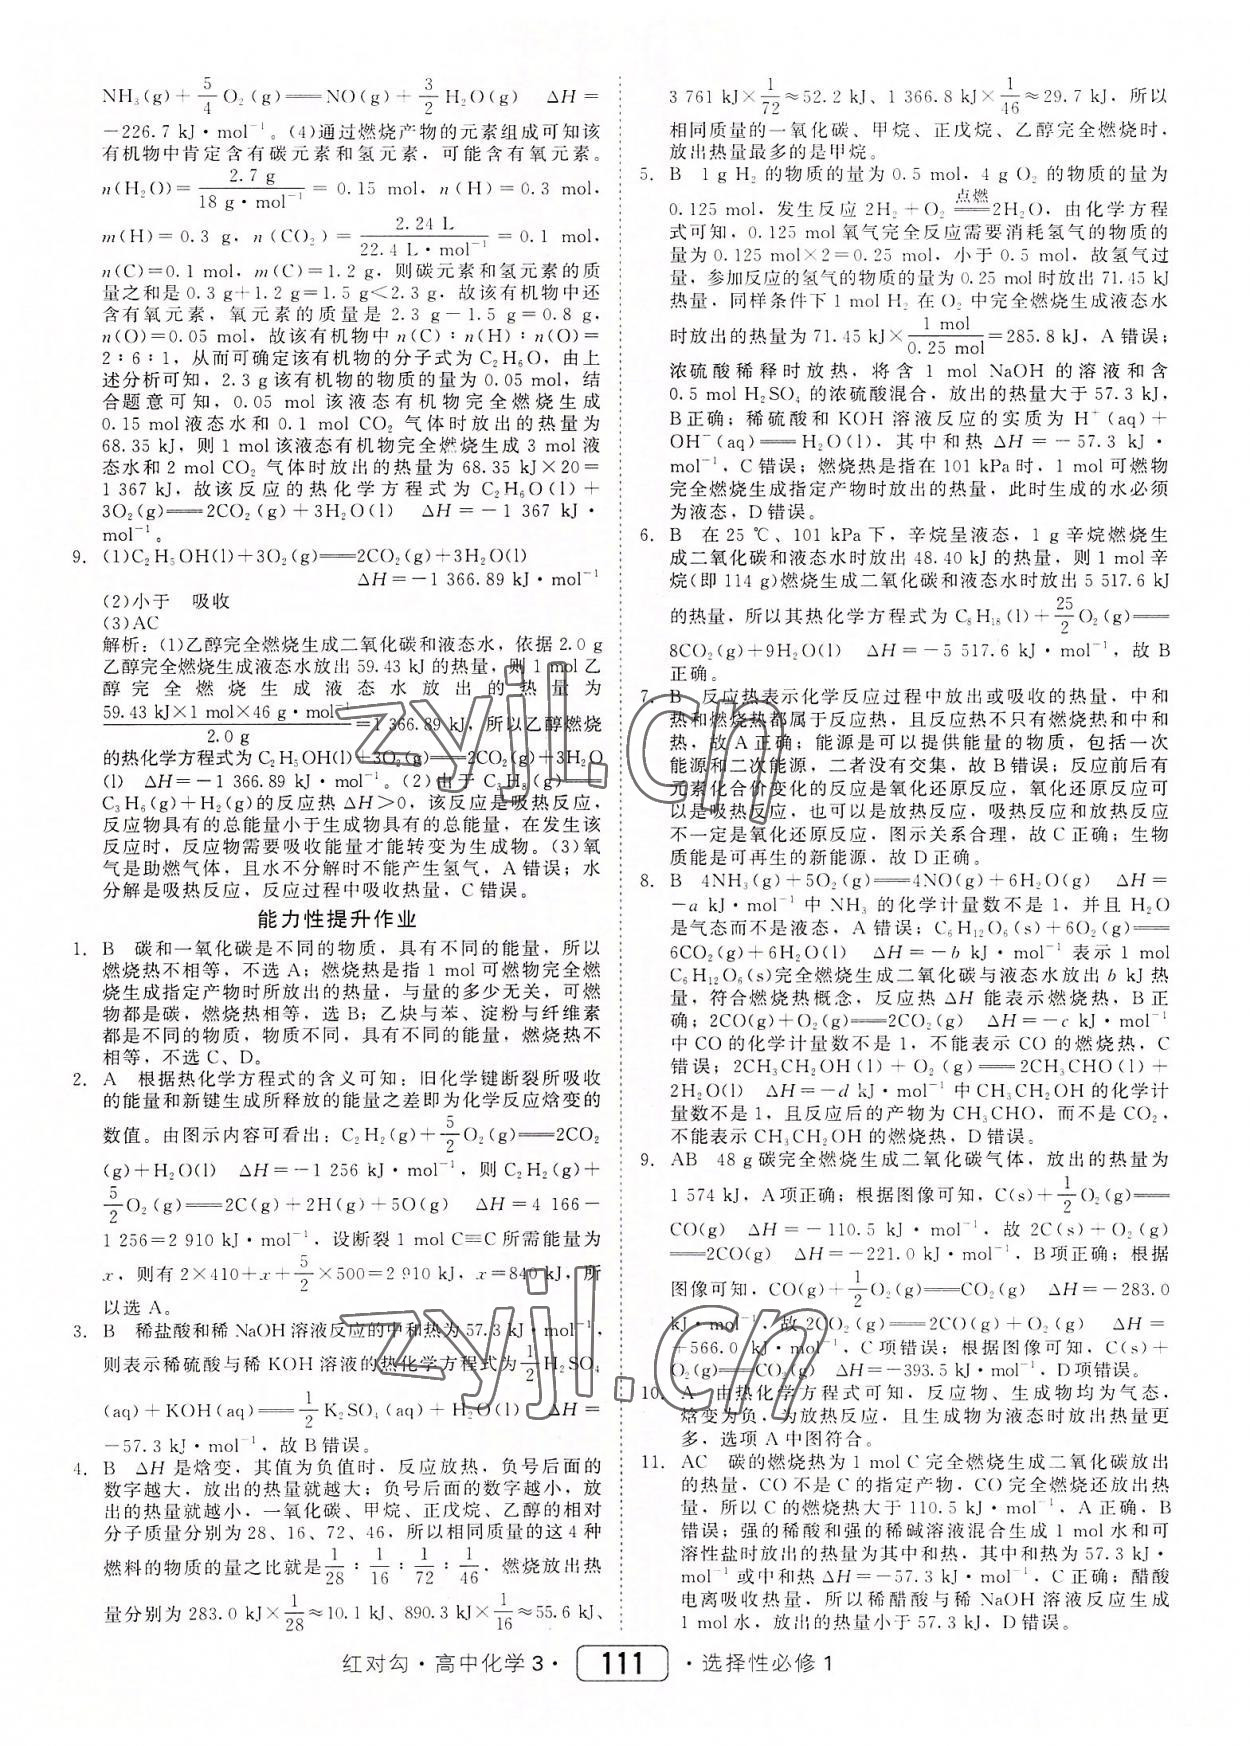 NH₃(g)+5/4O₂(g)══NO(g)+3/2H₂O(g) ΔH=
-226.7 kJ·mol⁻¹。(4)通过燃烧产物的元素组成可知该
有机物中肯定含有碳元素和氢元素，可能含有氧元素。
n(H₂O)=2.7 g/18 g·mol⁻¹=0.15 mol，n(H)=0.3 mol，
m(H)=0.3 g，n(CO₂)=2.24 L/22.4 L·mol⁻¹=0.1 mol，
n(C)=0.1 mol，m(C)=1.2 g，则碳元素和氢元素的质
量之和是0.3 g+1.2 g=1.5 g<2.3 g，故该有机物中还
含有氧元素，氧元素的质量是2.3 g-1.5 g=0.8 g，
n(O)=0.05 mol，故该有机物中n(C)∶n(H)∶n(O)=
2∶6∶1，从而可确定该有机物的分子式为C₂H₆O，由上
述分析可知，2.3 g该有机物的物质的量为0.05 mol，结
合题意可知，0.05 mol该液态有机物完全燃烧生成
0.15 mol液态水和0.1 mol CO₂气体时放出的热量为
68.35 kJ，则1 mol该液态有机物完全燃烧生成3 mol液
态水和2 mol CO₂气体时放出的热量为68.35 kJ×20=
1 367 kJ，故该反应的热化学方程式为C₂H₆O(l)+
3O₂(g)══2CO₂(g)+3H₂O(l) ΔH=-1 367 kJ·
mol⁻¹。
9. (1)C₂H₅OH(l)+3O₂(g)══2CO₂(g)+3H₂O(l)
ΔH=-1 366.89 kJ·mol⁻¹
(2)小于 吸收
(3)AC
解析：(1)乙醇完全燃烧生成二氧化碳和液态水，依据2.0 g
乙醇完全燃烧生成液态水放出59.43 kJ的热量，则1 mol乙
醇完全燃烧生成液态水放出的热量为
59.43 kJ×1 mol×46 g·mol⁻¹/2.0 g=1 366.89 kJ，所以乙醇燃烧
的热化学方程式为C₂H₅OH(l)+3O₂(g)══2CO₂(g)+3H₂O
(l) ΔH=-1 366.89 kJ·mol⁻¹。(2)由于C₃H₈(g)══
C₃H₆(g)+H₂(g)的反应热ΔH>0，该反应是吸热反应，
反应物具有的总能量小于生成物具有的总能量，在发生该
反应时，反应物需要吸收能量才能转变为生成物。(3)氧
气是助燃气体，且水不分解时不能产生氢气，A错误；水
分解是吸热反应，反应过程中吸收热量，C错误。
能力性提升作业
1. B 碳和一氧化碳是不同的物质，具有不同的能量，所以
燃烧热不相等，不选A；燃烧热是指1 mol可燃物完全燃
烧生成指定产物时所放出的热量，与量的多少无关，可燃
物都是碳，燃烧热相等，选B；乙炔与苯、淀粉与纤维素
都是不同的物质，物质不同，具有不同的能量，燃烧热不
相等，不选C、D。
2. A 根据热化学方程式的含义可知：旧化学键断裂所吸收
的能量和新键生成所释放的能量之差即为化学反应焓变的
数值。由图示内容可看出：C₂H₂(g)+5/2O₂(g)══2CO₂
(g)+H₂O(l) ΔH=-1 256 kJ·mol⁻¹，则C₂H₂(g)+
5/2O₂(g)══2C(g)+2H(g)+5O(g) ΔH=4 166-
1 256=2 910 kJ·mol⁻¹，设断裂1 mol C≡C所需能量为
x，则有2×410+x+5/2×500=2 910 kJ，x=840 kJ，所
以选A。
3. B 稀盐酸和稀NaOH溶液反应的中和热为57.3 kJ·mol⁻¹，
则表示稀硫酸与稀KOH溶液的热化学方程式为1/2H₂SO₄
(aq)+KOH(aq)══1/2K₂SO₄(aq)+H₂O(l) ΔH=
-57.3 kJ·mol⁻¹，故B错误。
4. B ΔH是焓变，其值为负值时，反应放热，负号后面的
数字越大，放出的热量就越大；负号后面的数字越小，放
出的热量就越小，一氧化碳、甲烷、正戊烷、乙醇的相对
分子质量分别为28、16、72、46，所以相同质量的这4种
燃料的物质的量之比就是1/28∶1/16∶1/72∶1/46．燃烧放出热
量分别为283.0 kJ×1/28≈10.1 kJ、890.3 kJ×1/16≈55.6 kJ、
3 761 kJ×1/72≈52.2 kJ、1 366.8 kJ×1/46≈29.7 kJ，所以
相同质量的一氧化碳、甲烷、正戊烷、乙醇完全燃烧时，
放出热量最多的是甲烷。
5. B 1 g H₂的物质的量为0.5 mol，4 g O₂的物质的量为
0.125 mol，发生反应2H₂+O₂══(点燃)2H₂O，由化学方程
式可知，0.125 mol氧气完全反应需要消耗氢气的物质的
量为0.125 mol×2=0.25 mol，小于0.5 mol，故氢气过
量，参加反应的氢气的物质的量为0.25 mol时放出71.45 kJ
热量，同样条件下1 mol H₂在O₂中完全燃烧生成液态水
时放出的热量为71.45 kJ×1 mol/0.25 mol=285.8 kJ，A错误；
浓硫酸稀释时放热，将含1 mol NaOH的溶液和含
0.5 mol H₂SO₄的浓硫酸混合，放出的热量大于57.3 kJ，
B正确；稀硫酸和KOH溶液反应的实质为H⁺(aq)+
OH⁻(aq)══H₂O(l)，其中和热ΔH=-57.3 kJ·
mol⁻¹，C错误；燃烧热是指在101 kPa时，1 mol可燃物
完全燃烧生成指定产物时放出的热量，此时生成的水必须
为液态，D错误。
6. B 在25 ℃、101 kPa下，辛烷呈液态，1 g辛烷燃烧生
成二氧化碳和液态水时放出48.40 kJ的热量，则1 mol辛
烷(即114 g)燃烧生成二氧化碳和液态水时放出5 517.6 kJ
的热量，所以其热化学方程式为C₈H₁₈(l)+25/2O₂(g)══
8CO₂(g)+9H₂O(l) ΔH=-5 517.6 kJ·mol⁻¹，故B
正确。
7. B 反应热表示化学反应过程中放出或吸收的热量，中和
热和燃烧热都属于反应热，且反应热不只有燃烧热和中和
热，故A正确；能源是可以提供能量的物质，包括一次
能源和二次能源，二者没有交集，故B错误；反应前后有
元素化合价变化的反应是氧化还原反应，氧化还原反应可
以是吸热反应，也可以是放热反应，吸热反应和放热反应
不一定是氧化还原反应，图示关系合理，故C正确；生物
质能是可再生的新能源，故D正确。
8. B 4NH₃(g)+5O₂(g)══4NO(g)+6H₂O(g) ΔH=
-a kJ·mol⁻¹中NH₃的化学计量数不是1，并且H₂O
是气态而不是液态，A错误；C₆H₁₂O₆(s)+6O₂(g)══
6CO₂(g)+6H₂O(l) ΔH=-b kJ·mol⁻¹表示1 mol
C₆H₁₂O₆(s)完全燃烧生成二氧化碳与液态水放出b kJ热
量，符合燃烧热概念，反应热ΔH能表示燃烧热，B正
确；2CO(g)+O₂(g)══2CO₂(g) ΔH=-c kJ·mol⁻¹
中CO的化学计量数不是1，不能表示CO的燃烧热，C
错误；2CH₃CH₂OH(l)+O₂(g)══2CH₃CHO(l)+
2H₂O(l) ΔH=-d kJ·mol⁻¹中CH₃CH₂OH的化学计
量数不是1，且反应后的产物为CH₃CHO，而不是CO₂，
不能表示CH₃CH₂OH的燃烧热，D错误。
9. AB 48 g碳完全燃烧生成二氧化碳气体，放出的热量为
1 574 kJ，A项正确；根据图像可知，C(s)+1/2O₂(g)══
CO(g) ΔH=-110.5 kJ·mol⁻¹，故2C(s)+O₂(g)
══2CO(g) ΔH=-221.0 kJ·mol⁻¹，B项正确；根据
图像可知，CO(g)+1/2O₂(g)══CO₂(g) ΔH=-283.0
kJ·mol⁻¹，故2CO₂(g)══2CO(g)+O₂(g) ΔH=
+566.0 kJ·mol⁻¹，C项错误；根据图像可知，C(s)+
O₂(g)══CO₂(g) ΔH=-393.5 kJ·mol⁻¹，D项错误。
10. A 由热化学方程式可知，反应物、生成物均为气态，
焓变为负，为放热反应，且生成物为液态时放出热量更
多，选项A中图符合。
11. AC 碳的燃烧热为1 mol C完全燃烧生成二氧化碳放出
的热量，CO不是C的指定产物，CO完全燃烧还放出热
量，所以C的燃烧热大于110.5 kJ·mol⁻¹，A正确，B
错误；强的稀酸和强的稀碱溶液混合生成1 mol水和可
溶性盐时放出的热量为其中和热，其中和热为57.3 kJ·
mol⁻¹或中和热ΔH=-57.3 kJ·mol⁻¹，C正确；醋酸
电离吸收热量，所以稀醋酸与稀NaOH溶液反应生成
1 mol水，放出的热量小于57.3 kJ，D错误。
zyjl.cn
zyjl.cn
红对勾·高中化学3· 111 ·选择性必修1